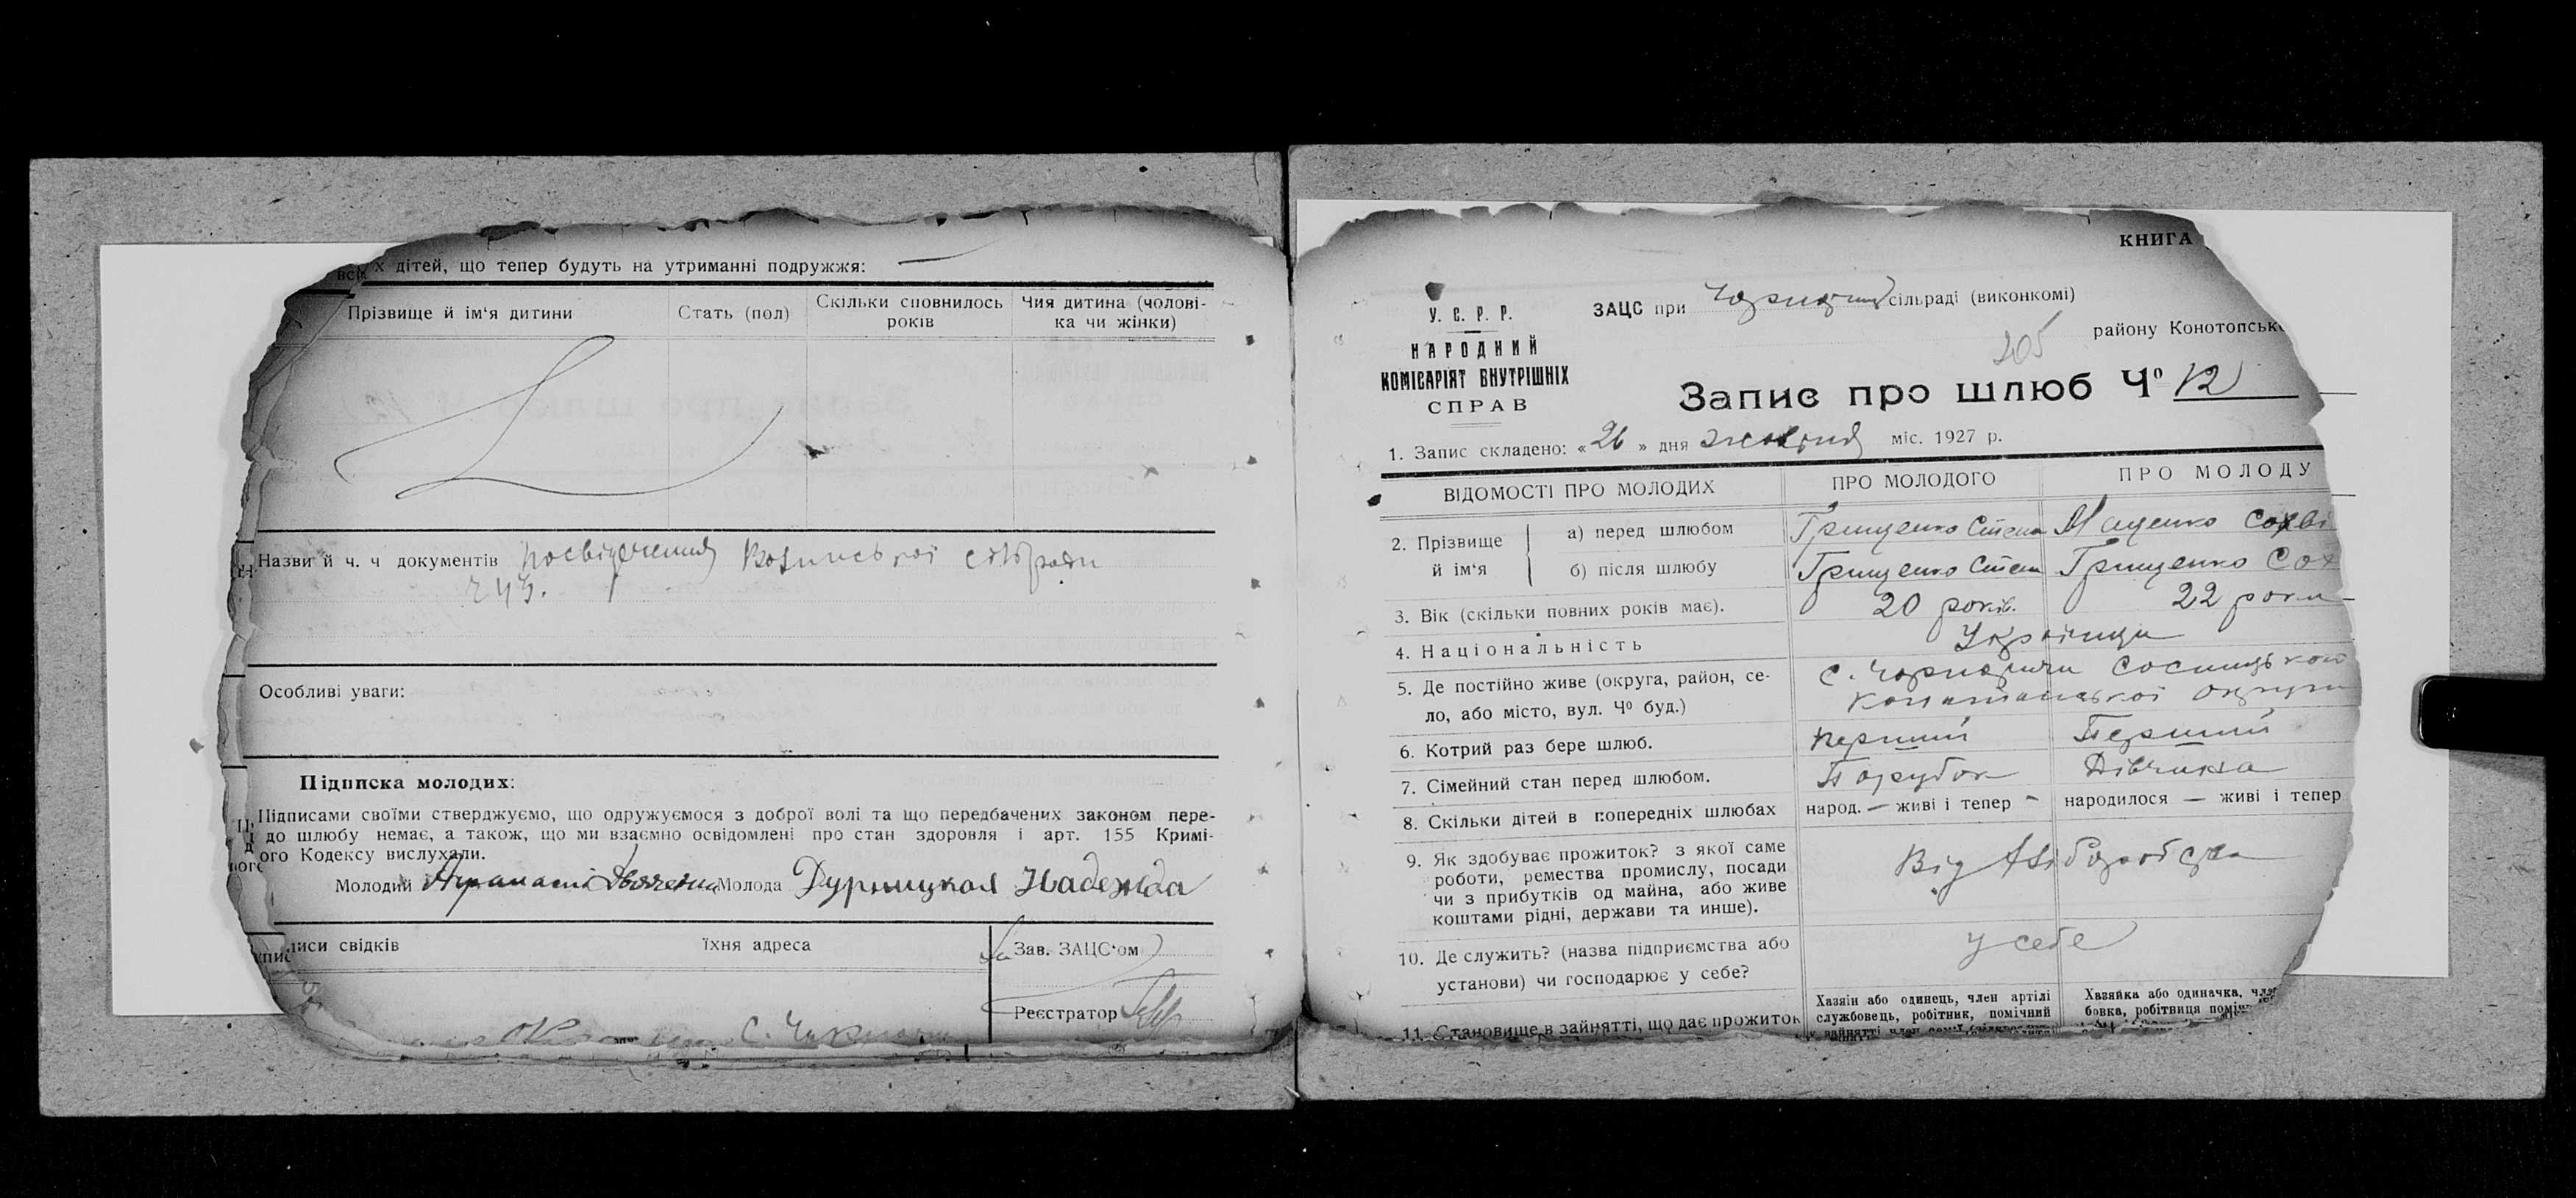 всіх дітей, що тепер будуть на утриманні подружжя: —
Прізвище й ім'я дитини
Стать (пол)
Скільки сповнилось років
Чия дитина (чолові-
ка чи жінки)
Назви й ч. ч документів посвідчення сільради
243.
Особливі уваги:
Підписка молодих:
Підписами своїми стверджуємо, що одружуємося з доброї волі та що передбачених законом пере-
до шлюбу немає, а також, що ми взаємно освідомлені про стан здоровля і арт. 155 Кримі-
ого Кодексу вислухали.
Молодий Молода Дурницкая Надежда
писи свідків
їхня адреса
Зав. ЗАЦС'ом
Реєстратор
КНИГА
У. С. Р. Р.
НАРОДНИЙ
КОМІСАРІЯТ ВНУТРІШНІХ
СПРАВ
ЗАЦС при сільраді (виконкомі)
205
району Конотопськ
Запис про шлюб Ч⁰ 12
1. Запис складено: « 26 » дня жовтня міс. 1927 р.
ВІДОМОСТІ ПРО МОЛОДИХ
ПРО МОЛОДОГО
ПРО МОЛОДУ
2. Прізвище й ім'я
а) перед шлюбом Грищенко Степа Маценко Сохві
б) після шлюбу Грищенко Степ Грищенко Сох
3. Вік (скільки повних років має). 20 років. 22 роки
4. Національність Українці
5. Де постійно живе (округа, район, се-
ло, або місто, вул. Ч⁰ буд.)
с. Сосницького
Конотопської округи
6. Котрий раз бере шлюб. перший Перший
7. Сімейний стан перед шлюбом. Парубок Дівчина
8. Скільки дітей в попередніх шлюбах народ. — живі і тепер - народилося — живі і тепер
9. Як здобуває прожиток? з якої саме
роботи, ремества промислу, посади
чи з прибутків од майна, або живе
коштами рідні, держави та инше).
Від хліборобства
10. Де служить? (назва підприємства або
установи) чи господарює у себе?
у себе
11. Становище в зайнятті, що дає прожиток
Хазяїн або одинець, член артілі
службовець, робітник, помічний
Хазяйка або одиначка,
бовка, робітниця